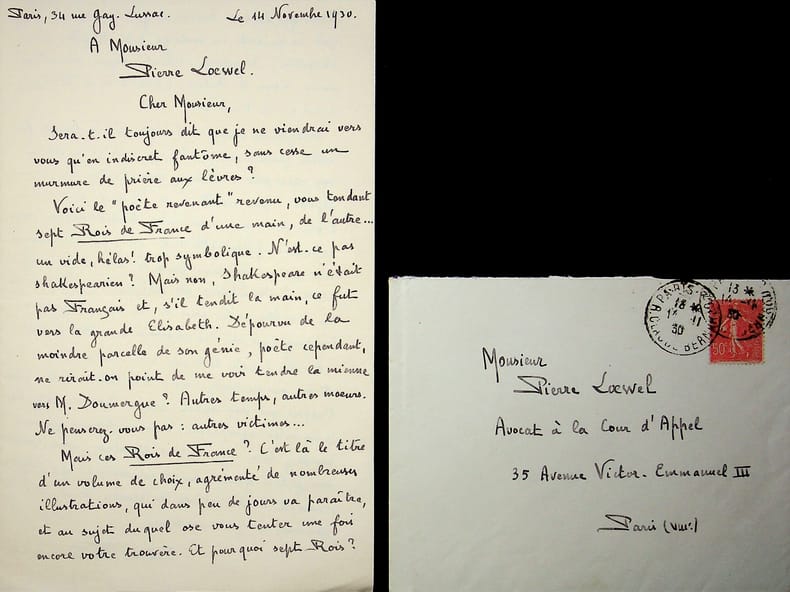 Paris, 34 rue Gay-Lussac. Le 14 Novembre 1930.
A Monsieur
Pierre Lœwel.
Cher Monsieur,
Sera-t-il toujours dit que je ne viendrai vers
vous qu'en indiscret fantôme, sans cesse un
murmure de prière aux lèvres ?
Voici le "poète revenant" revenu, vous tendant
sept Rois de France d'une main, de l'autre...
un vide, hélas! trop symbolique. N'est-ce pas
shakespearien ? Mais non, Shakespeare n'était
pas Français et, s'il tendit la main, ce fut
vers la grande Elisabeth. Dépourvu de la
moindre parcelle de son génie, poète cependant,
ne rirait-on point de me voir tendre la mienne
vers M. Doumergue ? Autres temps, autres moeurs.
Ne penserez-vous pas : autres victimes...
Mais ces Rois de France ? C'est là le titre
d'un volume de choix, agrémenté de nombreuses
illustrations, qui dans peu de jours va paraître,
et au sujet duquel ose vous tenter une fois
encore votre trouvère. Et pourquoi sept Rois ?
PARIS
13 *
14 - 11
30
R. CLAUDE BERNARD
13 *
30
50c
Monsieur
Pierre Lœwel
Avocat à la Cour d'Appel
35 Avenue Victor-Emmanuel III
Paris (VIIIe)